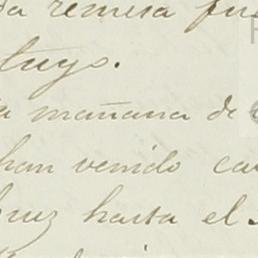 da remesa fue
tuyo.
a mañana de
han venido ca
ruz hasta el